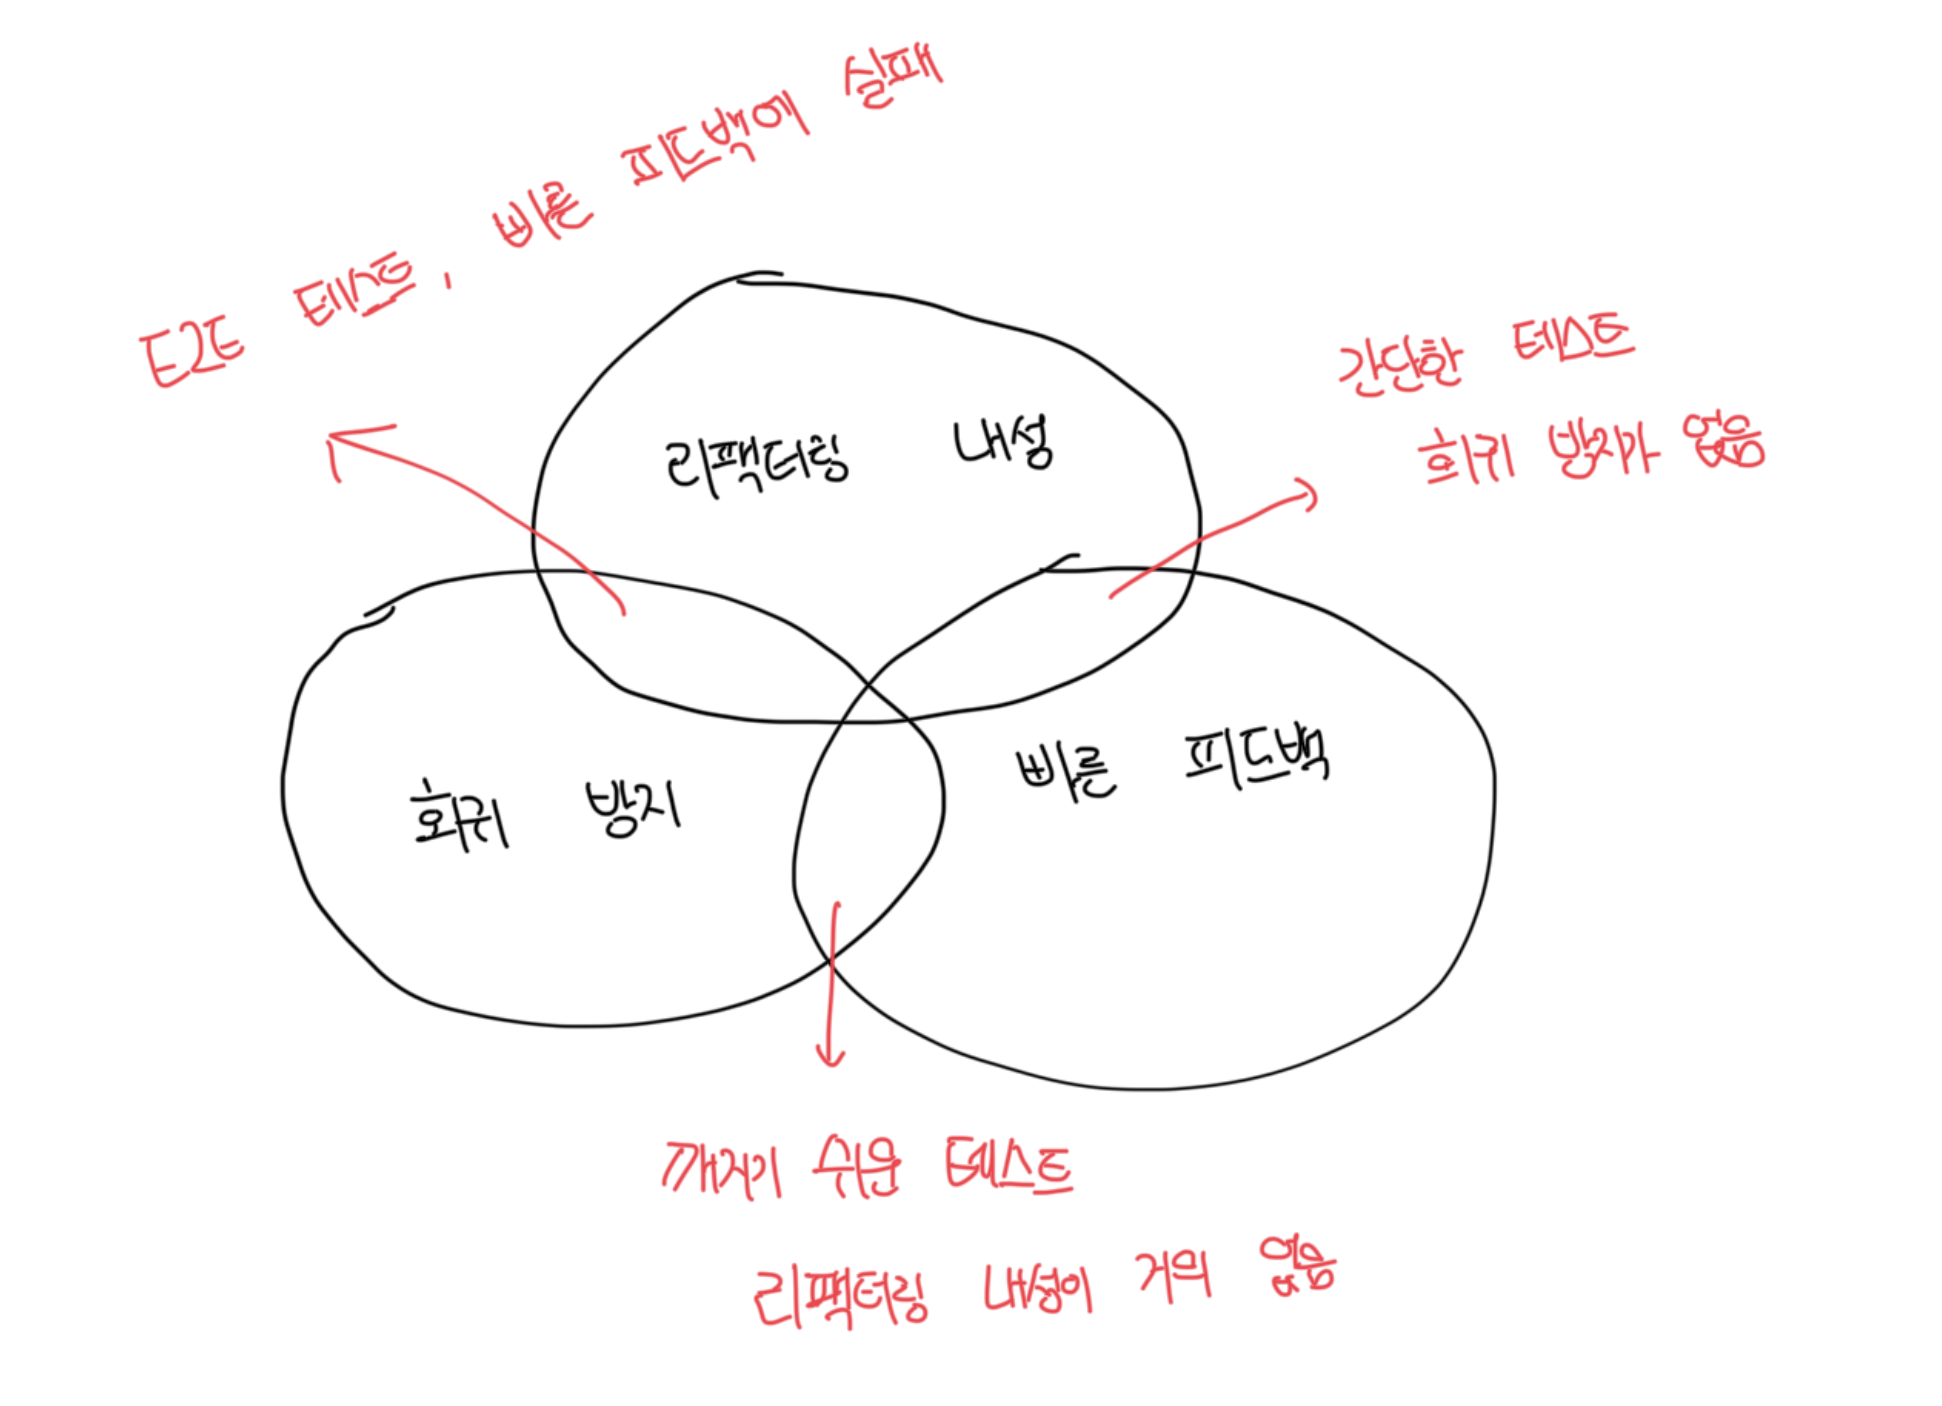 E2E 테스트, 빠른 피드백에 실패
간단한 테스트
회귀 방지가 없음
리팩터링 내성
회귀 방지
빠른 피드백
깨지기 쉬운 테스트
리팩터링 내성이 거의 없음